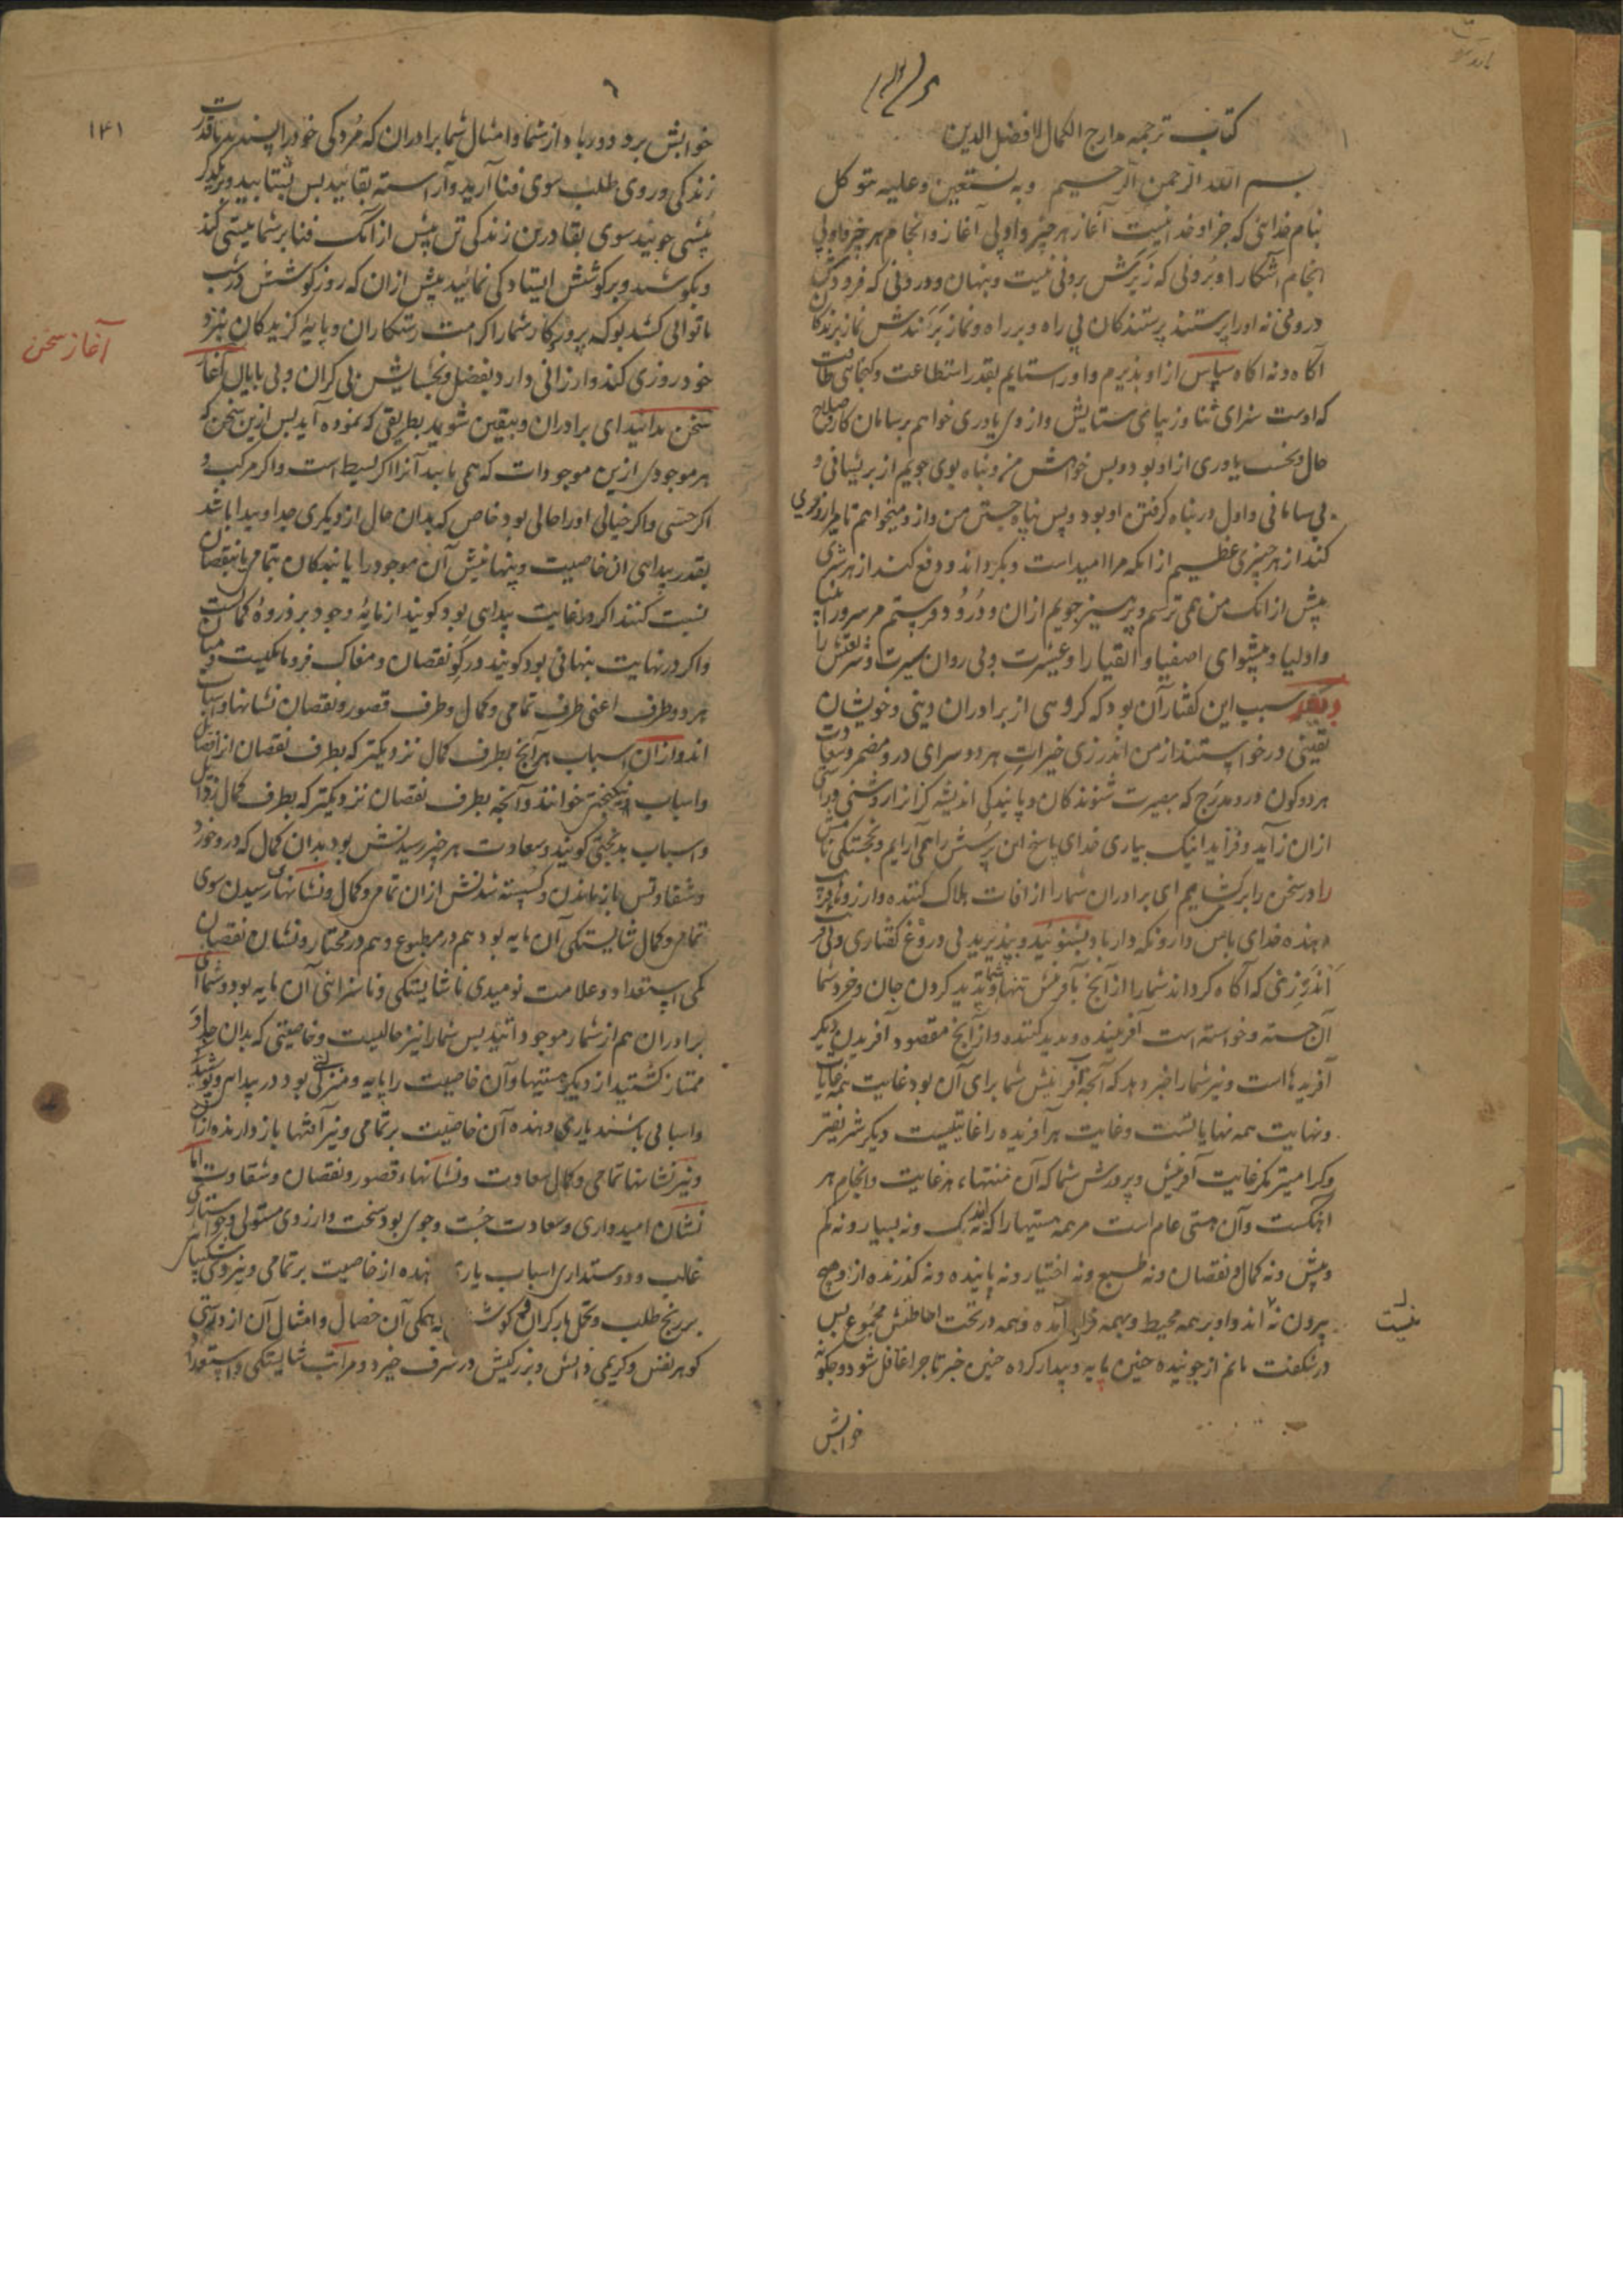 کتاب ترجمه مدارج الکمال لافضل الدین
بسم الله الرحمن الرحیم وبه نستعین وعلیه نتوکل
بنام خدائی که جز او خدا نیست آغاز هر چیز و اولی آغاز و انجام هر چیز و بی
انجام آشکارا و برونی که زبرش برونی نیست و پنهان و درونی که فرودش
درونی نه او را پرستند پرستندکان بی راه و بر راه و نماز برندش نماز برندکان
آکاه و نه آکاه سپاس از او پذیرم و او را ستایم بقدر استطاعت و کنجائی طاقت
که اوست سزای ثنا و زیبای ستایش و از وی یاوری خواهم بر سامان کار و صلاح
حال و نخست یاوری از او بود و پس خواهش من و پناه بوی جویم از پریشانی و
بی سامانی و اول در پناه کرفتن او بود و پس پناه جستن من و از و میخواهم تا مرا روی
کند از هر چیزی عظیم از انکه مرا امید است و بکرداند و دفع کند از هر شری
بیش از انک من همی ترسم و پرهیز جویم از ان و درود فرستم مر سرور انبیا
و اولیا و پیشوای اصفیا و اتقیا را و عترت و پی روان سیرت و شریعتش را
و بعد سبب این کفتار آن بود که کروهی از برادران دینی و خویشان
یقینی درخواستند از من اندرزی خیرات هر دو سرای درو مضمر و سعادت
هر دو کون درو مدرج که بصیرت شنوندکان و پایندکی اندیشه کزاران روشنی و
ازان زاید و فزاید اینک بیاری خدای پاسخ این پرسش را همی آرایم و بخجستکی نامش
را در سخن را بر کشایم ای برادران شمارا از آفات هلاک کننده و آرزوهای
خدای پاس دارد و نکه دارباد بشنوئید و بپذیرید بی دروغ کفتاری و بی
اندرزی که آکاه کرداند شمارا از آنچ بآفرینش تنها و پدید کردن جان و خرد شما
آن جسته و خواسته است آفریننده و پدید کننده و از آنچ مقصود آفریدن دیکر
آفریدها است و نیز شمارا خبر دهد که آنچه آفرینش شما برای آن بود غایت همه غایات
و نهایت همه نهایاتست و غایت هر آفریده را غایتیست دیکر شریفتر
و کرامیتر مکر غایت آفرینش و پرورش شما که آن منتهاء هر غایت و انجام هر
آهنکست و آن هستی عام است مر همه هستیها را که نه اندک و نه بسیار و نه کم
و بیش و نه کمال و نقصان و نه طبع و نه اختیار و نه پاینده و نه کذرنده از او هیچ
بیرون نه اند و او بر همه محیط و بهمه آمده و همه در تحت احاطتش مجموع پس
نیست
در شکفت مانم از جوینده چنین پایه و بیدار کرده چنین خبر تا چرا غافل شود و چکونه
خوابش
۱۴۱
خوابش برد و دور باد از شما و امثال شما برادران که مردکی خود را پسندید با قدرت
زندکی و روی طلب سوی فنا آرید و آراسته بقائید پس بشتابید و بر یکدیکر
پیشی جوئید سوی بقا درین زندکی تن پیش از انک فنا بر شما پیشی کند
و بکوشید و بر کوشش ایستادکی نمائید پیش ازان که روز کوشش در شب
ناتوانی کشد بوکه پروردکار شما را کرامت رستکاران و پایهٔ کزیدکان نزد
خود روزی کند و ارزانی دارد بفضل و بخشایش بی کران و بی پایان آغاز
آغاز سخن
سخن بدانید ای برادران و بیقین شوید بطریقی که نموده آید پس ازین سخن که
هر موجودی ازین موجودات که همی یابید آنرا اکر بسیط است و اکر مرکب و
اکر حسی و اکر خیالی او را حالی بود خاص که بدان حال از دیکری جدا و پیدا باشد
بقدر پیدائی ان خاصیت و پنهانیش آن موجود را یابندکان بتمامی یا نقصان
نسبت کنند اکر در غایت پیدائی بود کویند از مایهٔ وجود بر ذروهٔ کمالست
و اکر در نهایت پنهانی بود کویند در کو نقصان و مغاک فرومایکیست و میان
هر دو طرف اعنی طرف تمامی و کمال و طرف قصور و نقصان نشانها و اسباب
اند و ازان اسباب هر آنچ بطرف کمال نزدیکتر که بطرف نقصان از افضال
و اسباب نیکبختی خوانند و آنچه بطرف نقصان نزدیکتر که بطرف کمال
و اسباب بدبختی کویند و سعادت هر چیز رسیدنش بود بدان کمال که در خورد
و شقاوتش بازماندن و کسسته شدنش ازان تمامی و کمال و نشانهای رسیدن سوی
تمامی و کمال شایستکی آن مایه بود هم در مطبوع و هم در مختار و نشان نقصان
کمی استعداد و علامت نومیدی ناشایستکی و ناسزائی آن مایه بود و شما ای
برادران هم از شمار موجوداتید پس شمارا نیز حالیست و خاصیتی که بدان جدا و
ممتاز کشتید از دیکر هستیها و آن خاصیت را پایه و منزلتی بود در پیدائی و پوشیدکی
و اسبابی باشند یاری دهنده آن خاصیت بر تمامی و نیز آفتها بازدارنده ازان
و نیز نشانها تمامی و کمال سعادت و نشانهاء قصور و نقصان و شقاوت اما
نشان امیدواری و سعادت جست و جوی بود سخت و آرزوی مستولی و خواستاری
غالب و دوستداری اسباب یاری دهنده از خاصیت بر تمامی و نیروی شکیبائی
بر رنج طلب و تحمل بار کران کوشش که همکی آن خصال و امثال آن از درستی
کوهر نفس و کریمی ذاتش و بزرکیش در شرف خیزد و مراتب شایستکی و استعداد